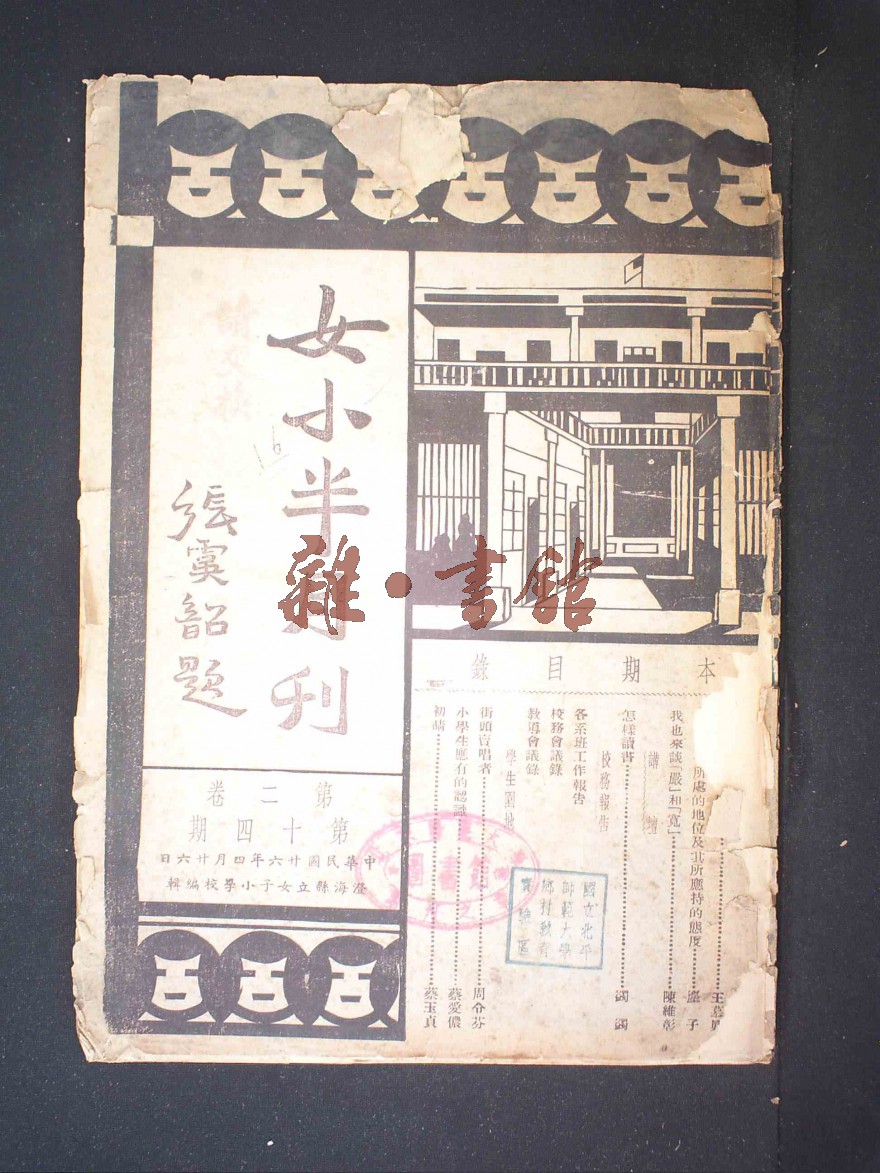 女小半月刊
張雲韶題
請交換
16
第二卷
第十四期
中華民國廿六年四月廿六日
澄海縣立女子小學校編輯
雜·書館
本期目錄
所處的地位及其所應持的態度
王慕
塵子
我也來談「嚴」和「寬」
陳維彰
講壇
怎樣讀書
蠲蠲
校務報告
各系班工作報告
校務會議錄
教導會議錄
學生園地
街頭賣唱者
周令芬
小學生應有的認識
蔡愛儂
初晴
蔡玉貞
國立北平
師範大學
鄉村教育
實驗區
圖書館